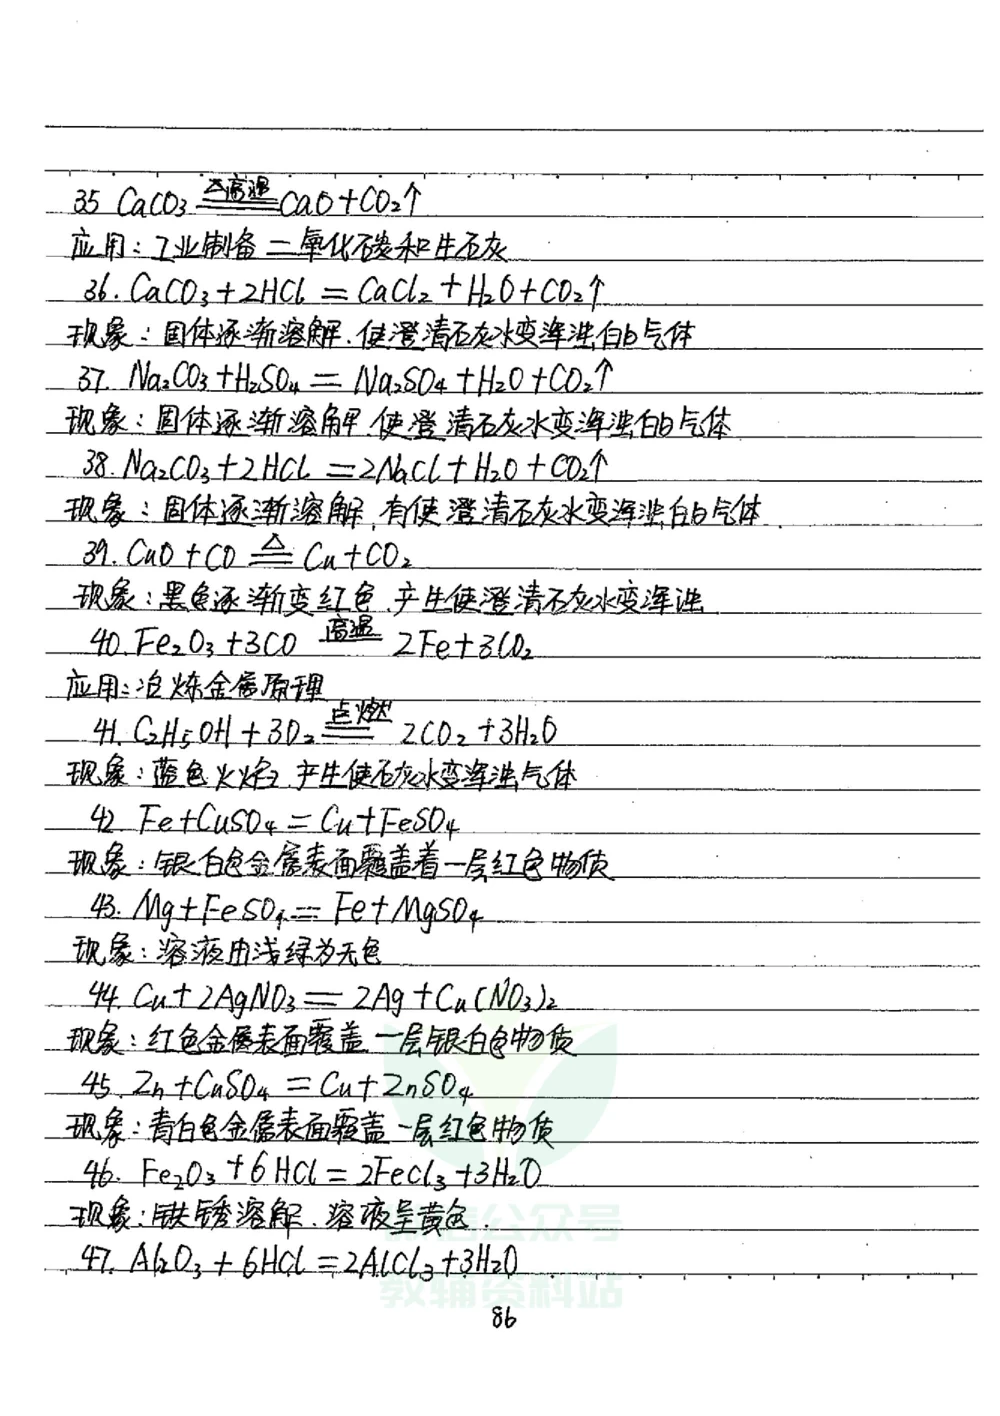 35 CaCO₃ △高温 CaO+CO₂↑
应用：工业制备二氧化碳和生石灰
36. CaCO₃+2HCl = CaCl₂+H₂O+CO₂↑
现象：固体逐渐溶解.使澄清石灰水变浑浊的气体
37. Na₂CO₃+H₂SO₄ = Na₂SO₄+H₂O+CO₂↑
现象：固体逐渐溶解.使澄清石灰水变浑浊的气体
38. Na₂CO₃+2HCl =2NaCl+H₂O+CO₂↑
现象：固体逐渐溶解.有使澄清石灰水变浑浊的气体
39. CuO+CO △ Cu+CO₂
现象：黑色逐渐变红色.产生使澄清石灰水变浑浊
40. Fe₂O₃+3CO 高温 2Fe+3CO₂
应用：冶炼金属原理
41. C₂H₅OH+3O₂ 点燃 2CO₂+3H₂O
现象：蓝色火焰.产生使石灰水变浑浊气体
42 Fe+CuSO₄=Cu+FeSO₄
现象：银白色金属表面覆盖着一层红色物质
43. Mg+FeSO₄=Fe+MgSO₄
现象：溶液由浅绿为无色
44. Cu+2AgNO₃=2Ag+Cu(NO₃)₂
现象：红色金属表面覆盖一层银白色物质
45. Zn+CuSO₄=Cu+ZnSO₄
现象：青白色金属表面覆盖一层红色物质
46. Fe₂O₃+6HCl=2FeCl₃+3H₂O
现象：铁锈溶解.溶液呈黄色.
微信公众号
47. Al₂O₃+6HCl=2AlCl₃+3H₂O
教辅资料站
86